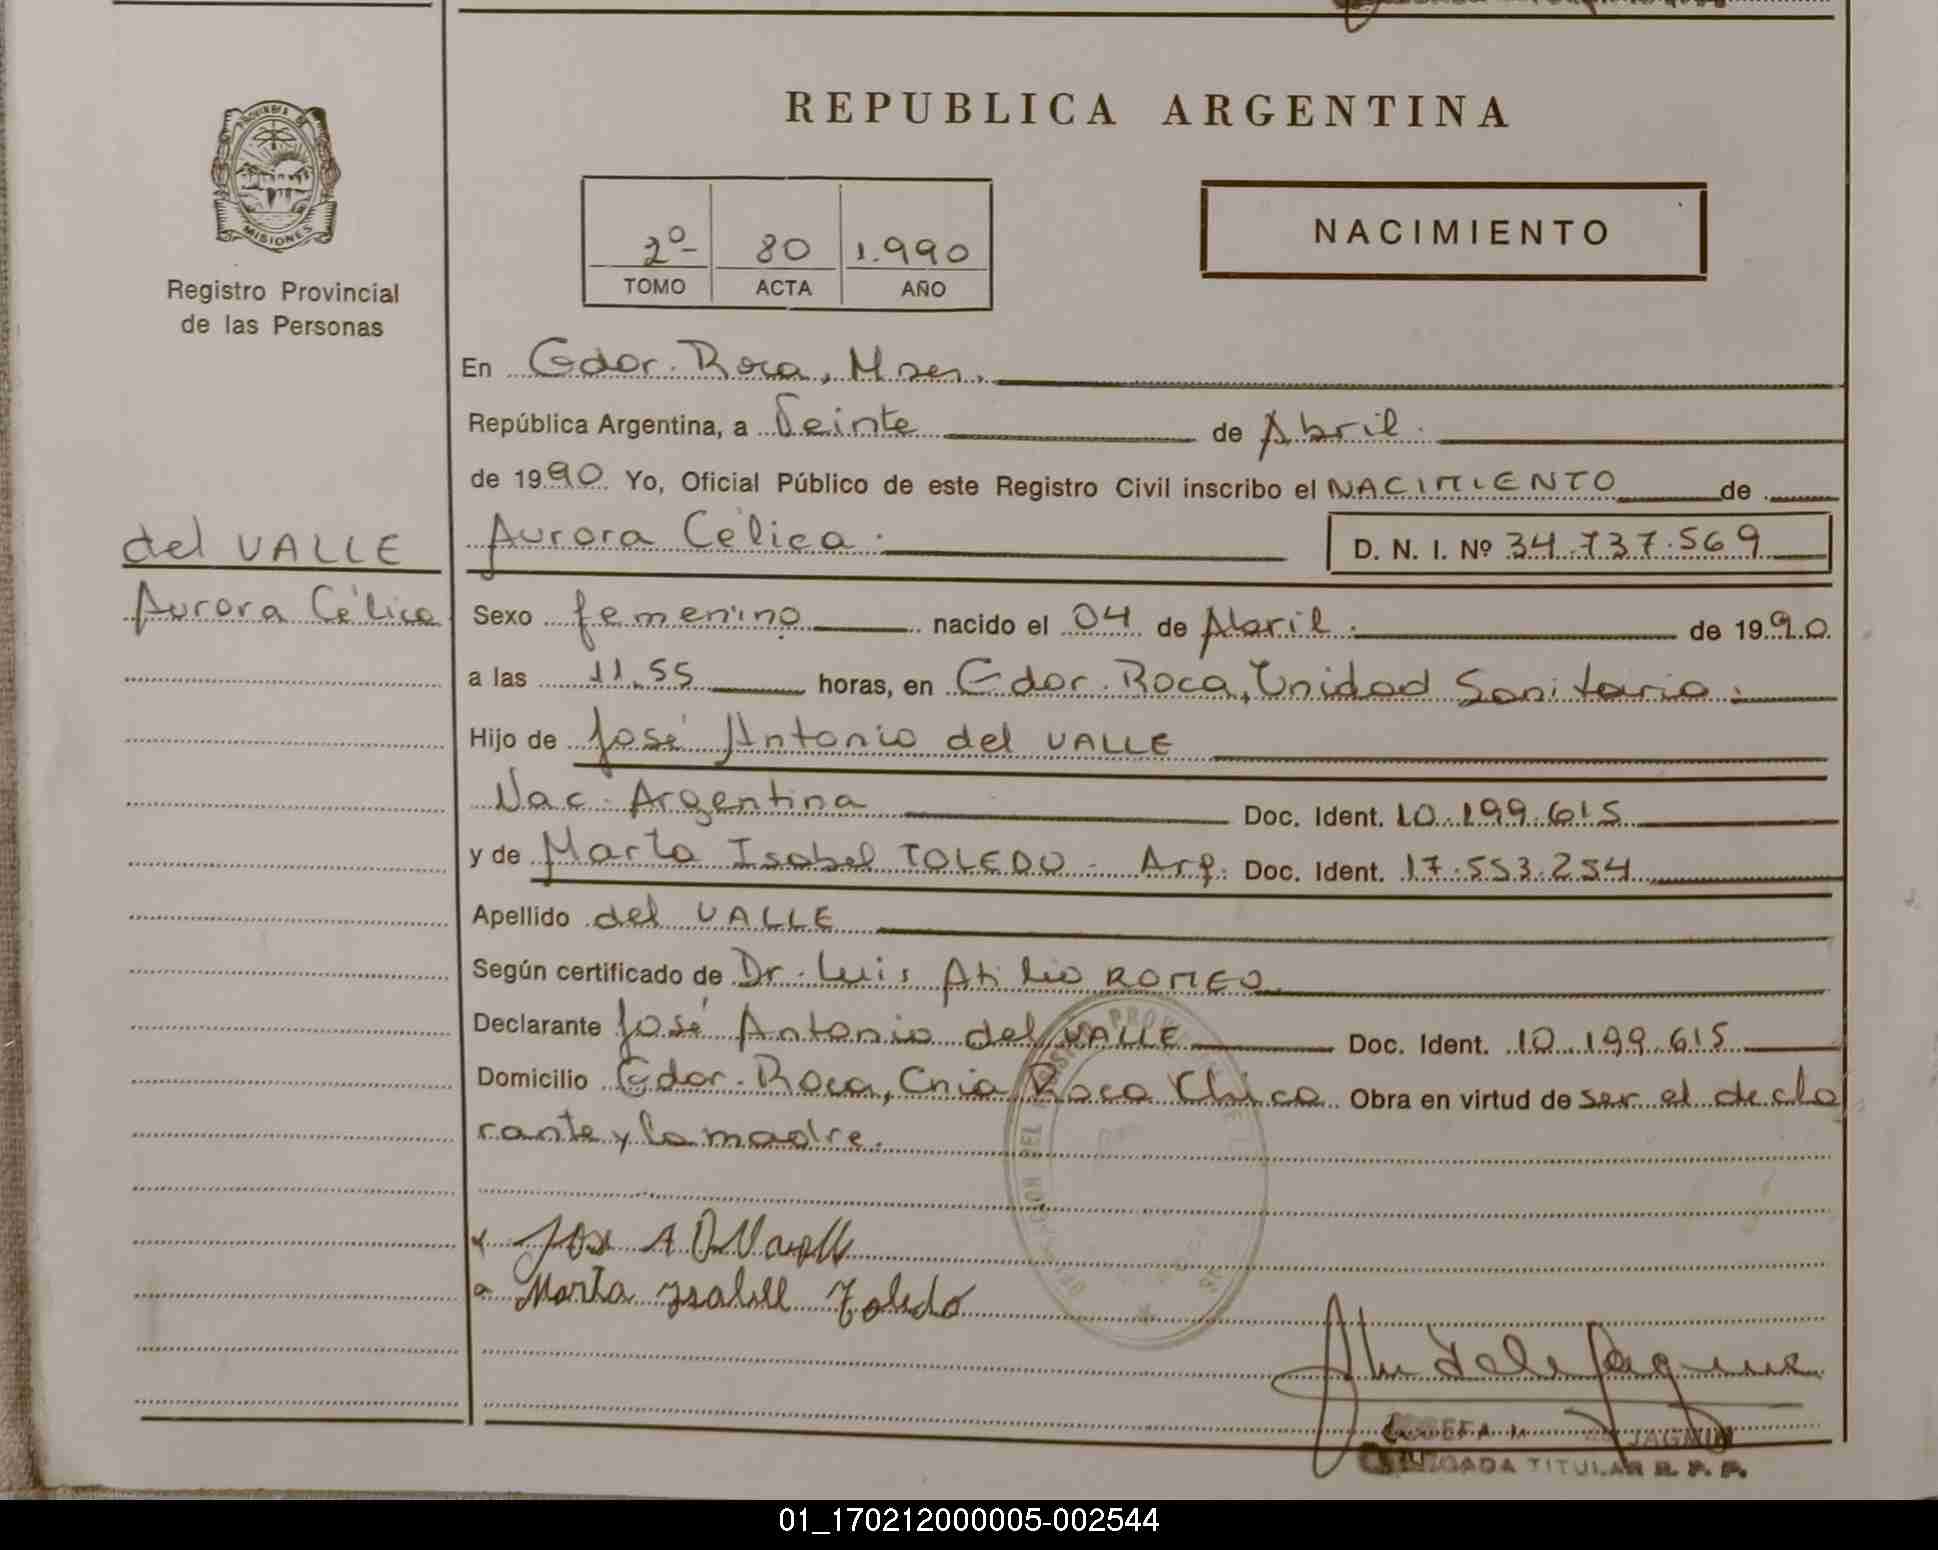 REPUBLICA ARGENTINA
PROVINCIA DE
MISIONES
Registro Provincial
de las Personas
2º 80 1.990
TOMO ACTA AÑO
NACIMIENTO
En Gdor. Roca, Mnes.
República Argentina, a Veinte de Abril.
de 1990 Yo, Oficial Público de este Registro Civil inscribo el NACIMIENTO de
del VALLE
Aurora Célica
Aurora Célica. D. N. I. Nº 34.737.569
Sexo femenino nacido el 04 de Abril. de 1990
a las 11.55 horas, en Gdor. Roca, Unidad Sanitaria.
Hijo de José Antonio del VALLE
Nac. Argentina Doc. Ident. 10.199.615
y de Marta Isabel TOLEDO - Arg. Doc. Ident. 17.553.254
Apellido del VALLE
Según certificado de Dr. Luis Atilio ROMEO
Declarante José Antonio del VALLE Doc. Ident. 10.199.615
Domicilio Gdor. Roca, Cnia Roca Chica Obra en virtud de ser el decla
rante y la madre.
Marta Isabell Toledo
JAGNIN
TITULAR R. P. P.
01_170212000005-002544